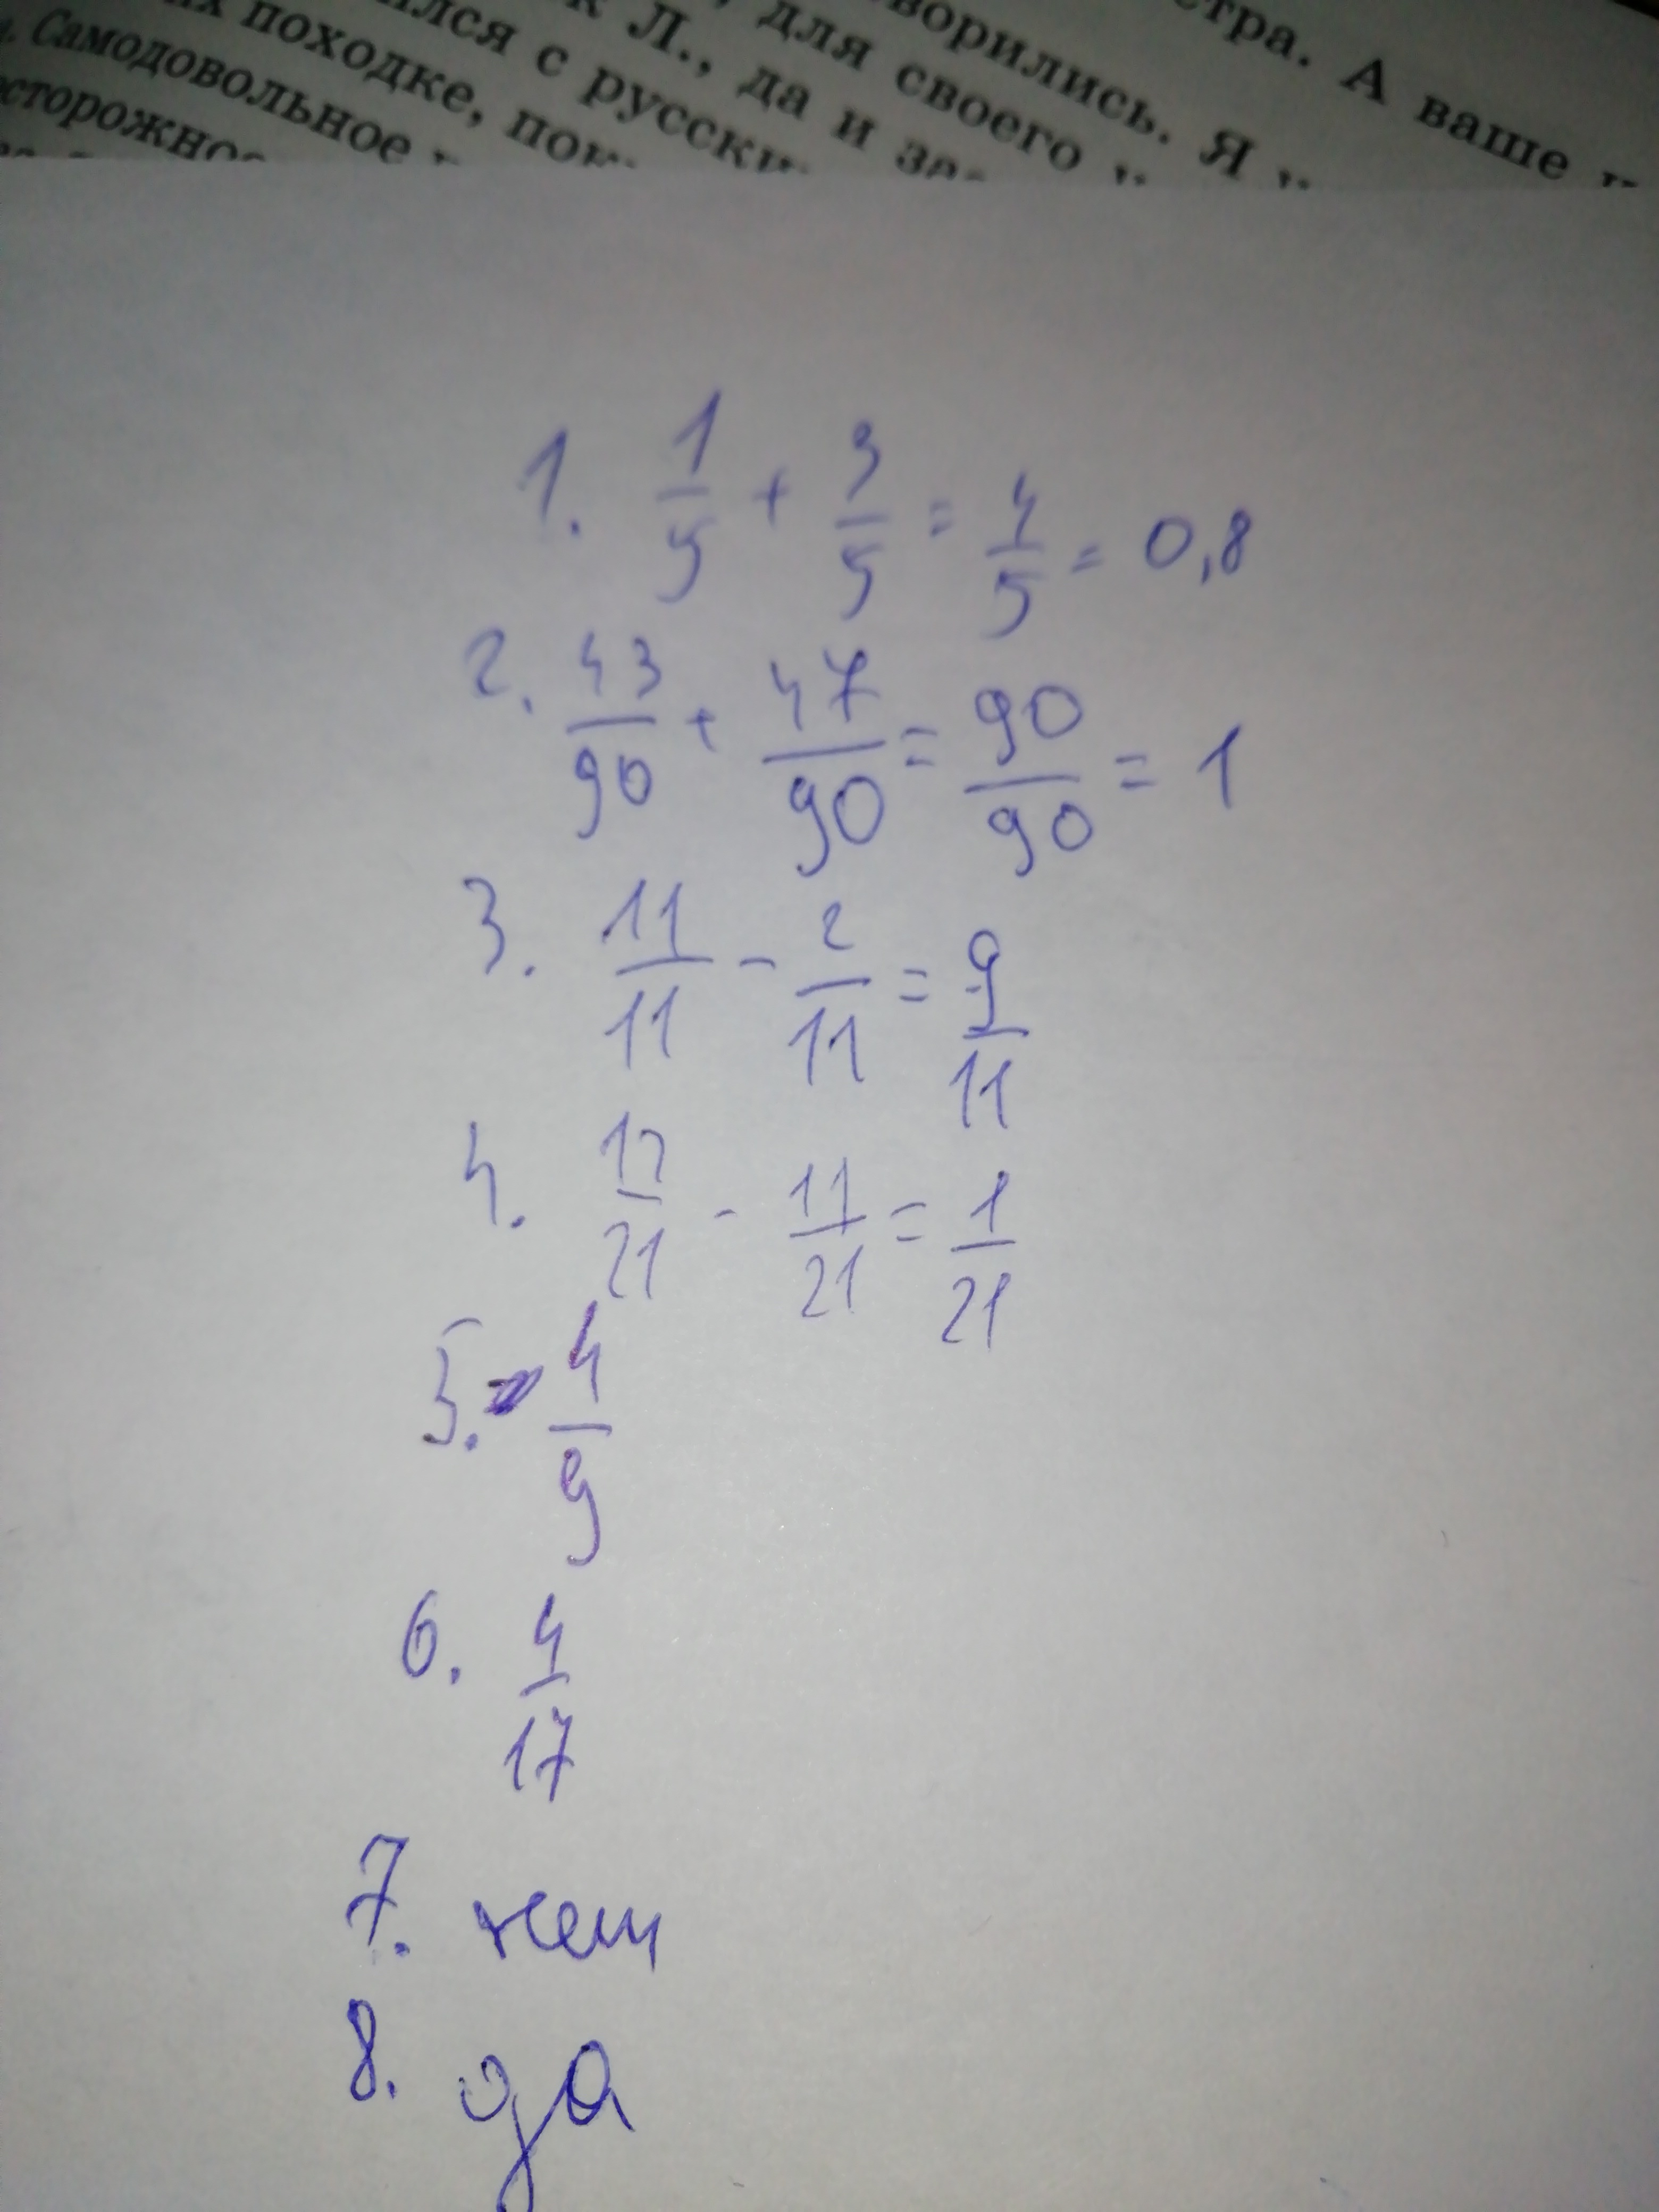 стра. А ваше
ворились. Я
для своего
Л., да и
лся с русски
походке,
Самодовольное
1. 1/5 + 3/5 = 4/5 = 0,8
2. 43/90 + 47/90 = 90/90 = 1
3. 11/11 - 2/11 = 9/11
4. 12/21 - 11/21 = 1/21
5. 4/9
6. 4/17
7. нет
8. да